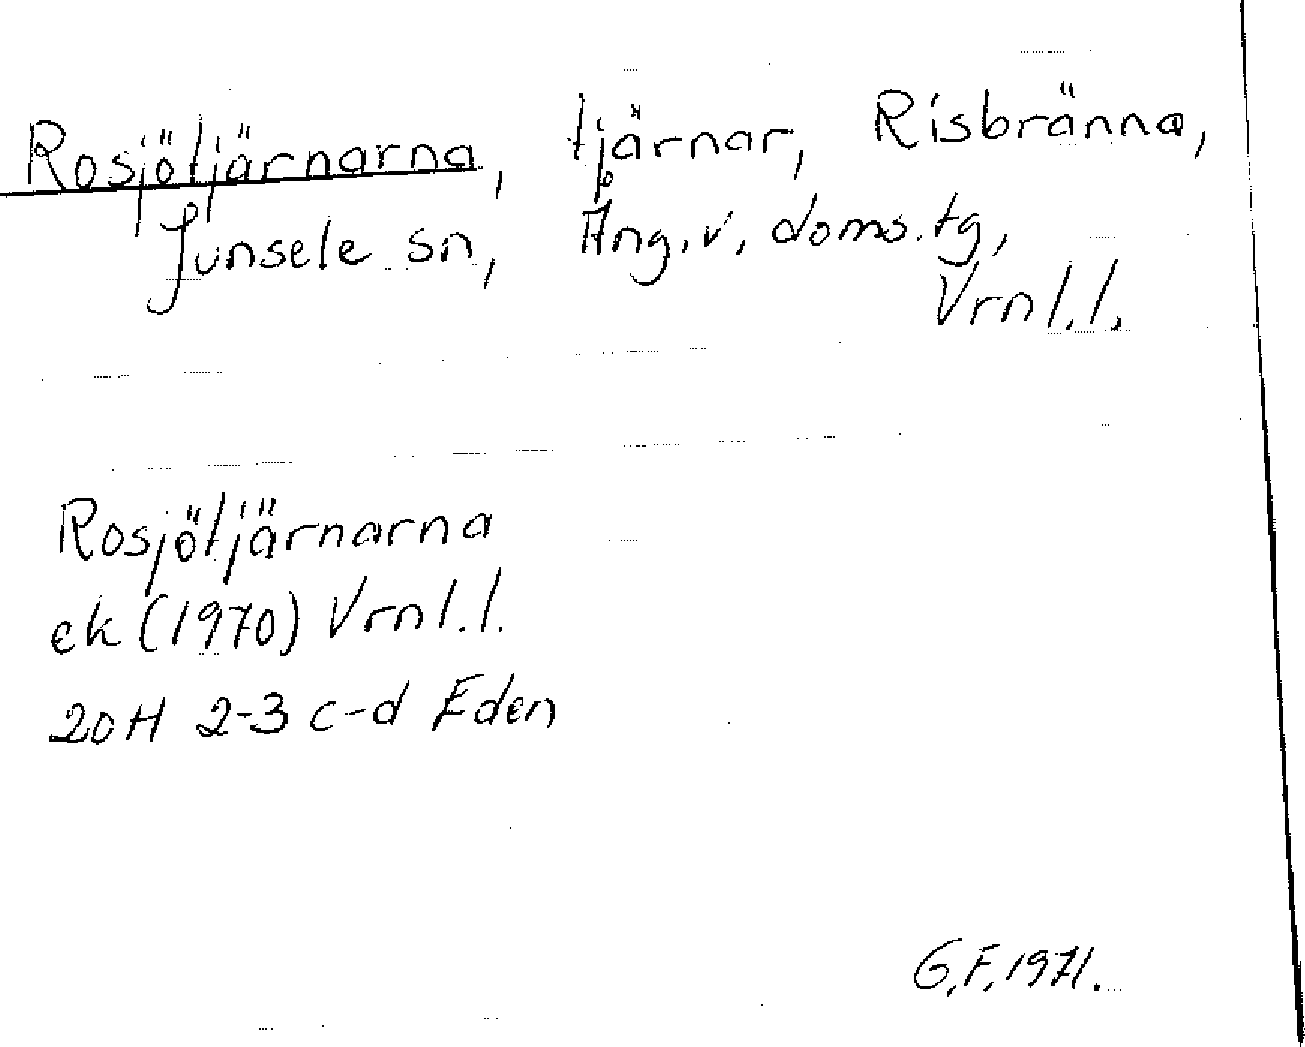 Rosjötjärnarna, tjärnar, Risbränna,
Junsele sn, Ång.v. doms.tg,
Vrnl.l.
Rosjötjärnarna
ek (1970) Vrnl.l.
20H 2-3 c-d Eden
G.F. 1971.